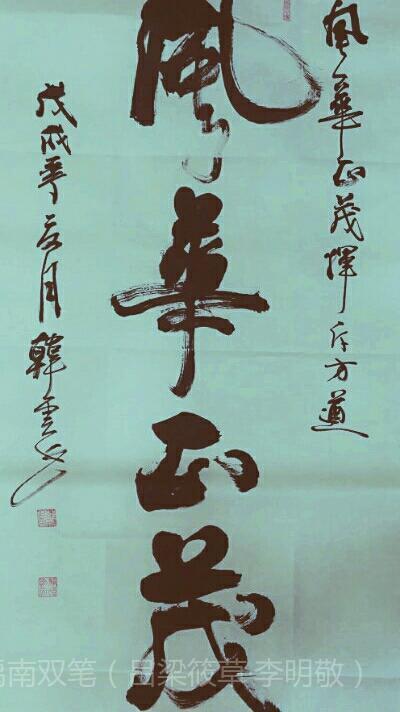 風華正茂揮斥方遒
風華正茂
戊戌年月韓雲
南双笔（吕梁筱草-李明敬）